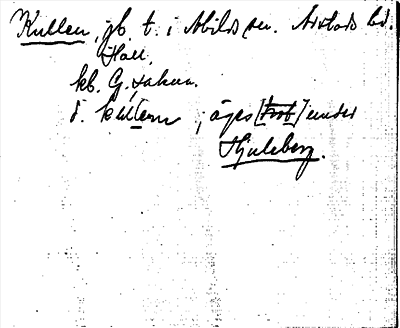 Kullen, gb. t. i Abilds sn. Årstads hd.
Hall.
kb. G. saknas.
d. kullern, äges [trol.] under
Hjuleberg.